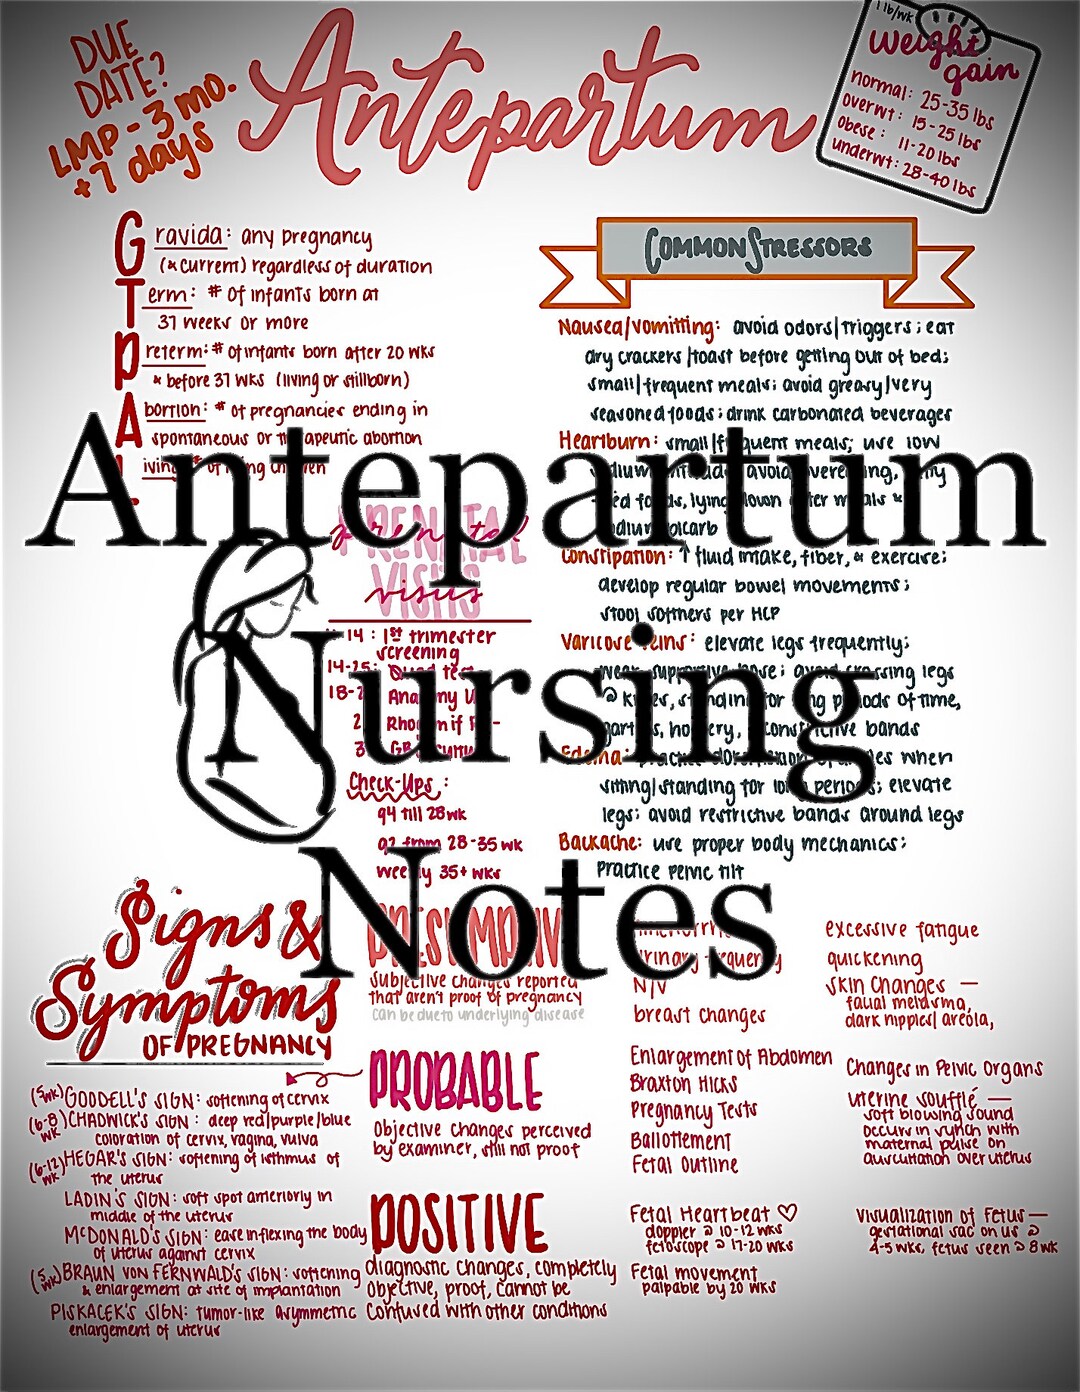 DUE
DATE?
LMP - 3 mo.
+7 days
Antepartum
1 lb/wk
weight
gain
normal: 25-35 lbs
overwt: 15-25 lbs
obese: 11-20 lbs
underwt: 28-40 lbs
Gravida: any pregnancy
(& current) regardless of duration
Term: # of infants born at
37 weeks or more
Preterm: # of infants born after 20 wks
& before 37 wks (living or stillborn)
Abortion: # of pregnancies ending in
spontaneous or abortion
Living: of children
COMMON STRESSORS
Nausea/vomitting: avoid odors/triggers; eat
dry crackers/toast before getting out of bed;
small/frequent meals; avoid greasy/very
seasoned foods; drink carbonated beverages
Heartburn: small/frequent meals; use low
avoid
lying down meals &
Constipation: ↑ fluid intake, fiber, & exercise;
develop regular bowel movements;
stool softners per HCP
Varicose veins: elevate legs frequently;
wear supportive hose; avoid crossing legs
@ knees, standing for long periods of time,
constrictive bands
Edema: practice dorsiflexion of when
sitting/standing for long periods; elevate
legs; avoid restrictive bands around legs
Backache: use proper body mechanics;
practice pelvic tilt
Antepartum
Nursing
Notes
PRENATAL
VISITS
prenatal
visits
14: 1st trimester
screening
14-15: Quad
18- Anatomy
Rhogam if
Check-Ups:
q4 till 28wk
q2 from 28-35 wk
weekly 35+ wks
Signs &
Symptoms
OF PREGNANCY
(5wk) GOODELL'S SIGN: softening of cervix
(6-8 wk) CHADWICK'S SIGN: deep red/purple/blue
coloration of cervix, vagina, vulva
(6-12 wk) HEGAR'S SIGN: softening of isthmus of
the uterus
LADIN'S SIGN: soft spot anteriorly in
middle of the uterus
McDONALD'S SIGN: ease in flexing the body
of uterus against cervix
(5 wk) BRAUN VON FERNWALD'S SIGN: softening
& enlargement at site of implantation
PISKACEK'S SIGN: tumor-like asymmetric
enlargement of uterus
PRESUMPTIVE
subjective changes reported
that aren't proof of pregnancy
can be due to underlying disease
urinary frequency
N/V
breast changes
excessive fatigue
quickening
skin changes —
facial melasma,
dark nipples/areola,
PROBABLE
Objective changes perceived
by examiner, still not proof
Enlargement of Abdomen
Braxton Hicks
Pregnancy Tests
Ballottement
Fetal Outline
Changes in Pelvic Organs
uterine souffle —
soft blowing sound
occurs in synch with
maternal pulse on
auscultation over uterus
POSITIVE
diagnostic changes, completely
objective, proof, cannot be
confused with other conditions
Fetal Heartbeat ♡
doppler @ 10-12 wks
fetoscope @ 17-20 wks
Fetal movement
palpable by 20 wks
Visualization of Fetus —
gestational sac on us @
4-5 wks, fetus seen @ 8wk